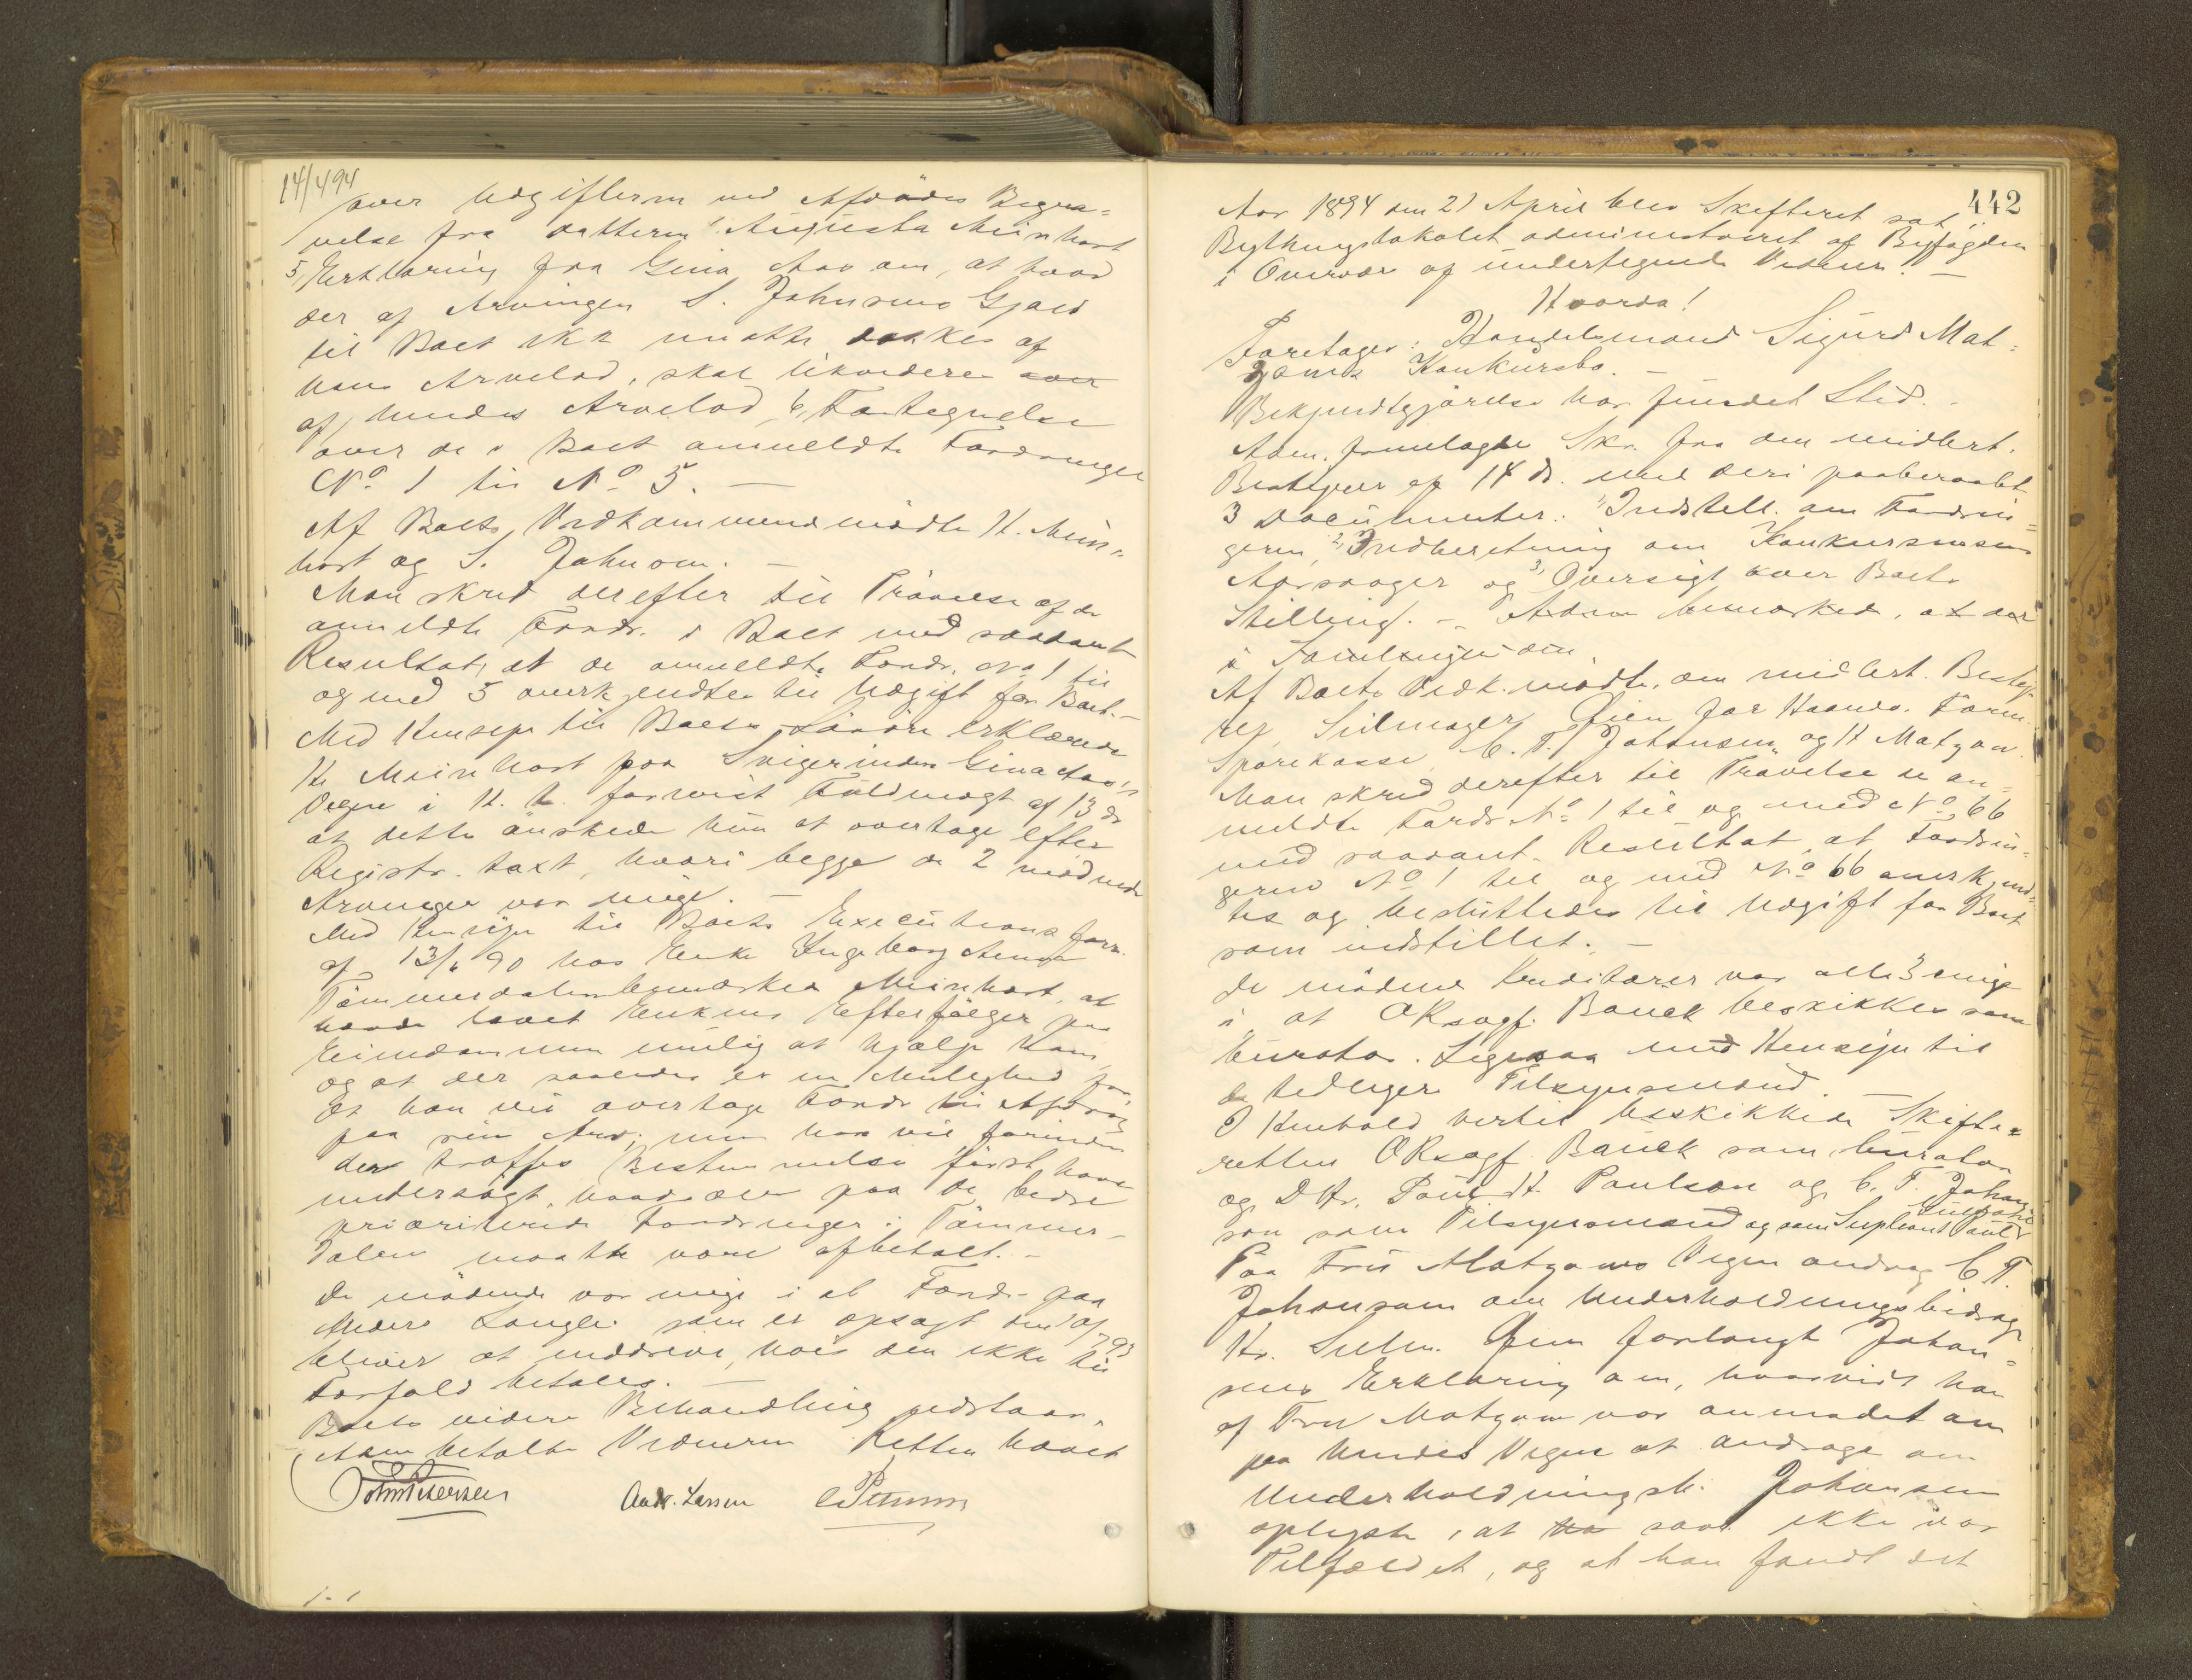 14/4 94
over Udgifterne ved Afdødes Begra=
velse fra datteren Augusta Meinhart
5, Erklæring fra Gina Aas om, at hvad
der af Arvingen S. Johnsens Gjæld
til Boet ikke maatte dækkes af
hans Arvelod, skal likvideres
af hendes Arvelod, 6, Fortegnelse
over de i Boet anmeldte Fordringer
No 1 til No 5. —
Af Boets Vedkommende mødte H. Mein=
hart og S. Johnsen. —
Man skred derefter til Prøvelse af de
anmeldte Fordr. i Boet med saadant
Resultat, at de anmeldte Fordr. No 1 til
og med 5 anerkjendtes til Udgift for Boet. —
Med Hensyn til Boets Løsøre erklærede
H. Meinhart paa Svigerinden Gina Aas's
Vegne i H. t. forevist Fuldmagt af 13 ds
at dette ønskede hun at overtage efter
Registr. taxt, hvori begge de 2 mødende
Arvinger var enige. —
Med Hensyn til Boets Executionsforr.
af 13/6 90 hos Enke Ingeborg Anna
Tømmerdalen bemærkes Meinhart, at
havde lovet Enkens Efterfølger paa
Eiendommen mulig at hjælpe ham,
og at der saaledes er en Mulighed for
at han vil overtage Fordr. til Afdrag
paa sin Arv; men han vil forinden
der træffes Bestemmelse først have
undersøgt, hvad der paa de bedre
prioriterede Fordringer i Tømmer-
dalen maatte være afbetalt. —
De mødende var enige i at Fordr. paa
Anders Langli som er opsagt den
bliver at inddrive, hvis den ikke til
Forfald betales. —
Boets videre Behandling udstaar.
Adm betalte Vidnerne Retten hævet
Andr. Larsen
442
Aar 1894 den 21 April blev Skifteret sat i
Bythingslokalet administreret af Byfogden
i Overvær af undertegnede Vidner. —
Hvorda!
Foretages: Handelsmand Sigurd Mat=
zows Konkursbo. —
Bekjendtgjørelse har fundet Sted. —
Adm. fremlagde Skr. fra den midlert.
Bestyrer af 14 ds. med deri paaberaabt
3 Documenter: 1, Indstill. om Fordrin=
gerne, 2, Indberetning om Konkursens
Aarsager og 3, Oversigt over Boets
Stilling. — Adm bemærkede, at der
i
Af Boets Vedk. mødte, den midlert. Besty=
rer, Sadlmager for Haandv. Foren.
Sparekasse, C. T. Johansen og H Matzow
Man skred derefter til Prøvelse de an=
meldte Fordr No 1 til og med No 66
med saadant Resultat, at Fordrin=
gerne No 1 til og med No 66 anerkjend=
tes og besluttedes til Udgift for Boet
som indstillet. —
De mødende Kreditorer var alle 3 enige
i at ORsagf. Bauck beskikkes som
Curator. Ligesaa med Hensyn til
de tidligere Tilsynsmænd. —
I Henhold hertil beskikkede Skifte=
retten ORsagf. Bauck som Curator
og DHr. Poul H. Paulson og C. T. Johan=
sen som Tilsynsmænd og som Supleant
Paa Fru Matzows Vegne androg C T.
Johansen om Underholdningsbidrag
Hr. forlangte Johan=
sens Erklæring om, hvorvidt han
af Fru Matzow var anmodet om
paa hendes Vegne at andrage om
Underholdningsb. Johansen
oplyste, at saa ikke var
Tilfældet, og at han fandt det